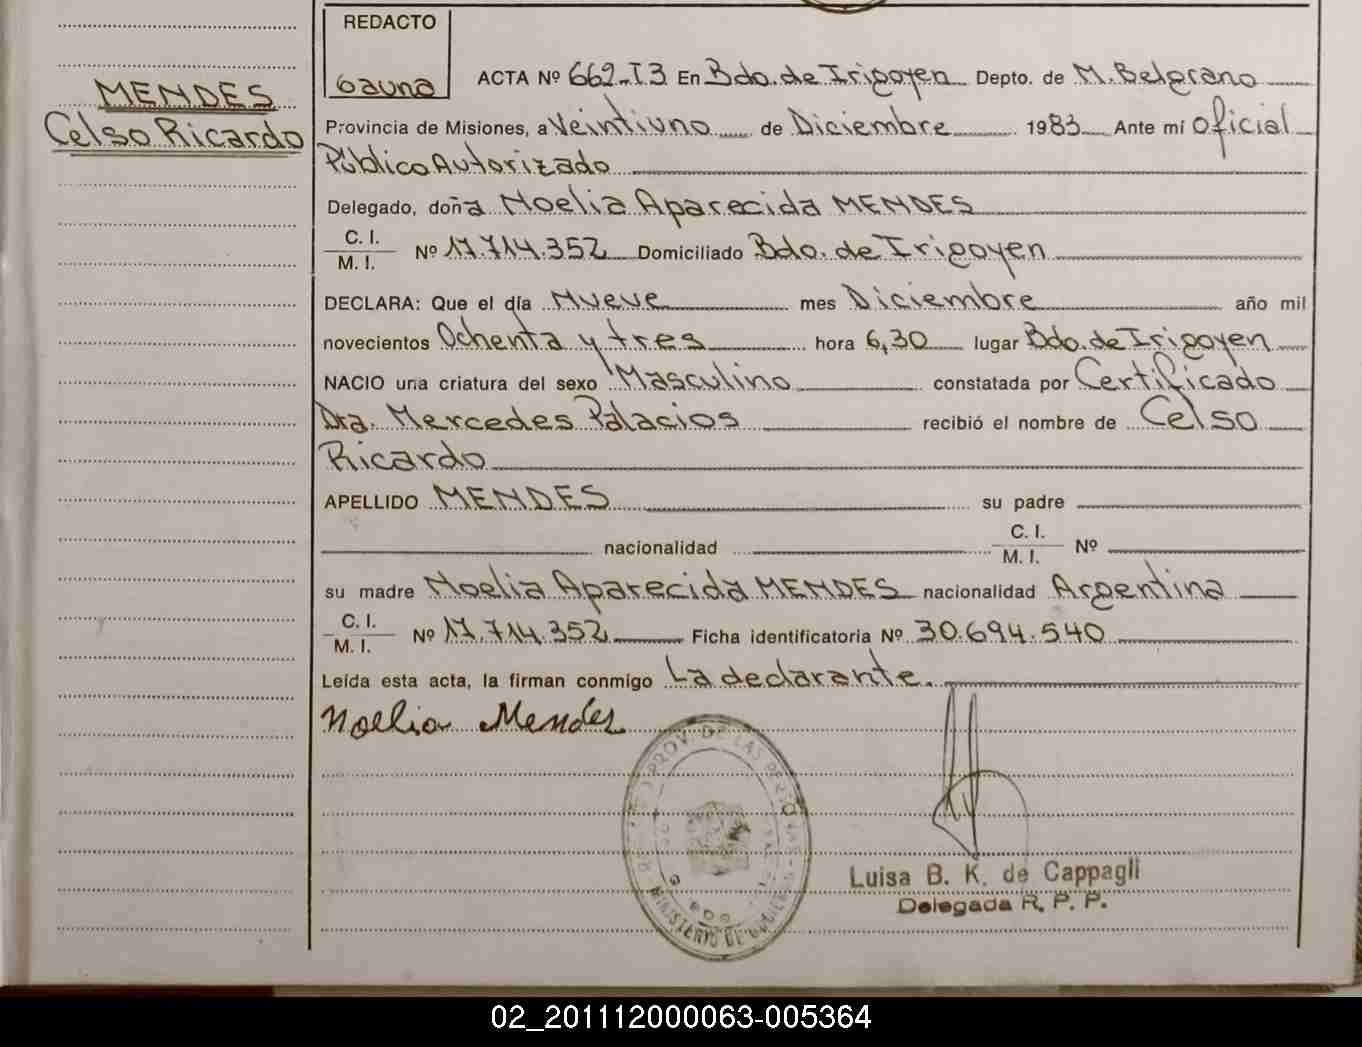 REDACTO
Gauna
MENDES
Celso Ricardo
ACTA Nº 662-T3 En Bdo. de Irigoyen Depto. de M. Belgrano
Provincia de Misiones, a Veintiuno de Diciembre 1983 Ante mí Oficial
Público Autorizado
Delegado, doña Noelia Aparecida MENDES
C. I.
M. I. Nº 17.714.352 Domiciliado Bdo. de Irigoyen
DECLARA: Que el día Nueve mes Diciembre año mil
novecientos Ochenta y tres hora 6,30 lugar Bdo. de Irigoyen
NACIO una criatura del sexo Masculino constatada por Certificado
Dra. Mercedes Palacios recibió el nombre de Celso
Ricardo
APELLIDO MENDES su padre
nacionalidad C. I. M. I. Nº
su madre Noelia Aparecida MENDES nacionalidad Argentina
C. I.
M. I. Nº 17.714.352 Ficha identificatoria Nº 30.694.540
Leída esta acta, la firman conmigo La declarante.
Noelia Mendes
PROV. DE LAS PERSONAS
MINISTERIO DE GOBIERNO
Luisa B. K. de Cappagli
Delegada R. P. P.
02_201112000063-005364